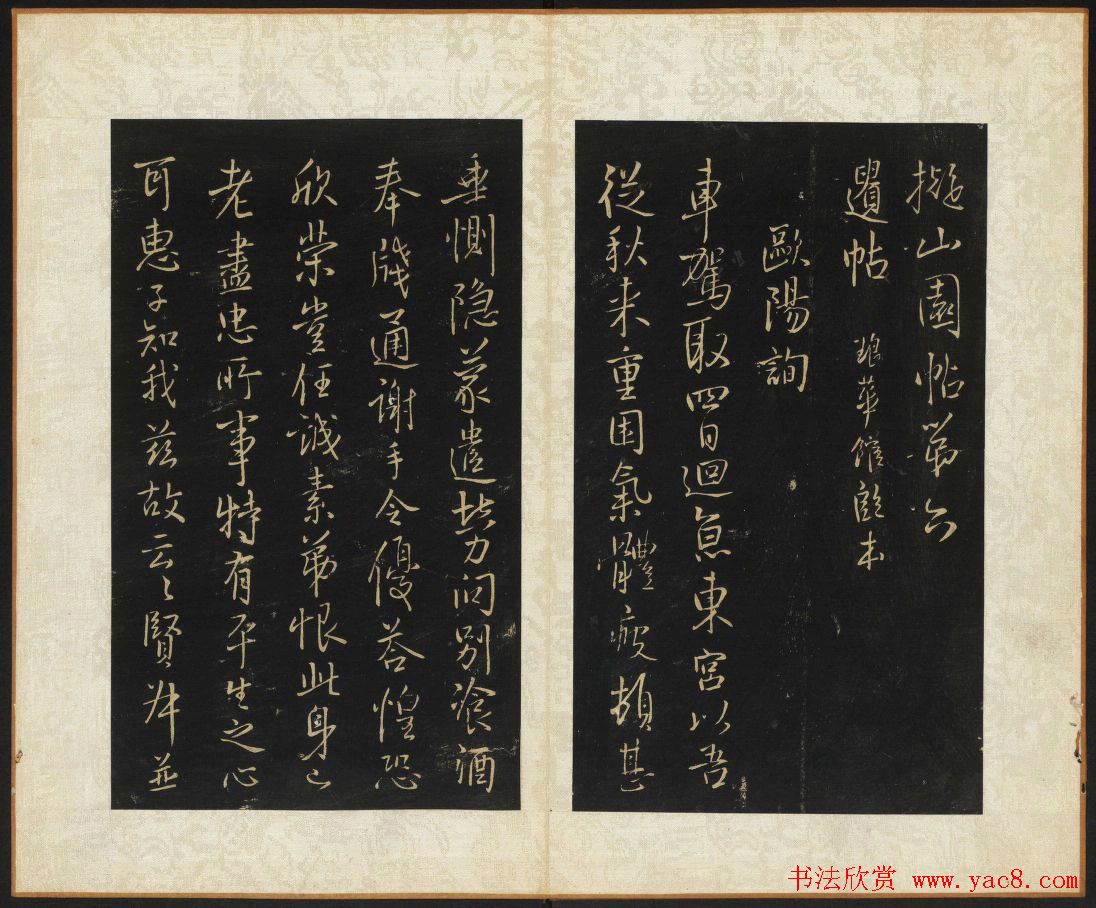 擬山園帖第六
遺帖 琅華館藏本
歐陽詢
車駕取四日迴意東宮以吾
從秋来重困氣體疲頓甚
垂惻隐蒙遣勞问别飡酒
奉牋通謝手令優荅惶恐
欣榮豈任誠素第恨此身已
老盡忠所事特有平生之心
耳惠子知我兹故云〻賢舛並
书法欣赏 www.yac8.com